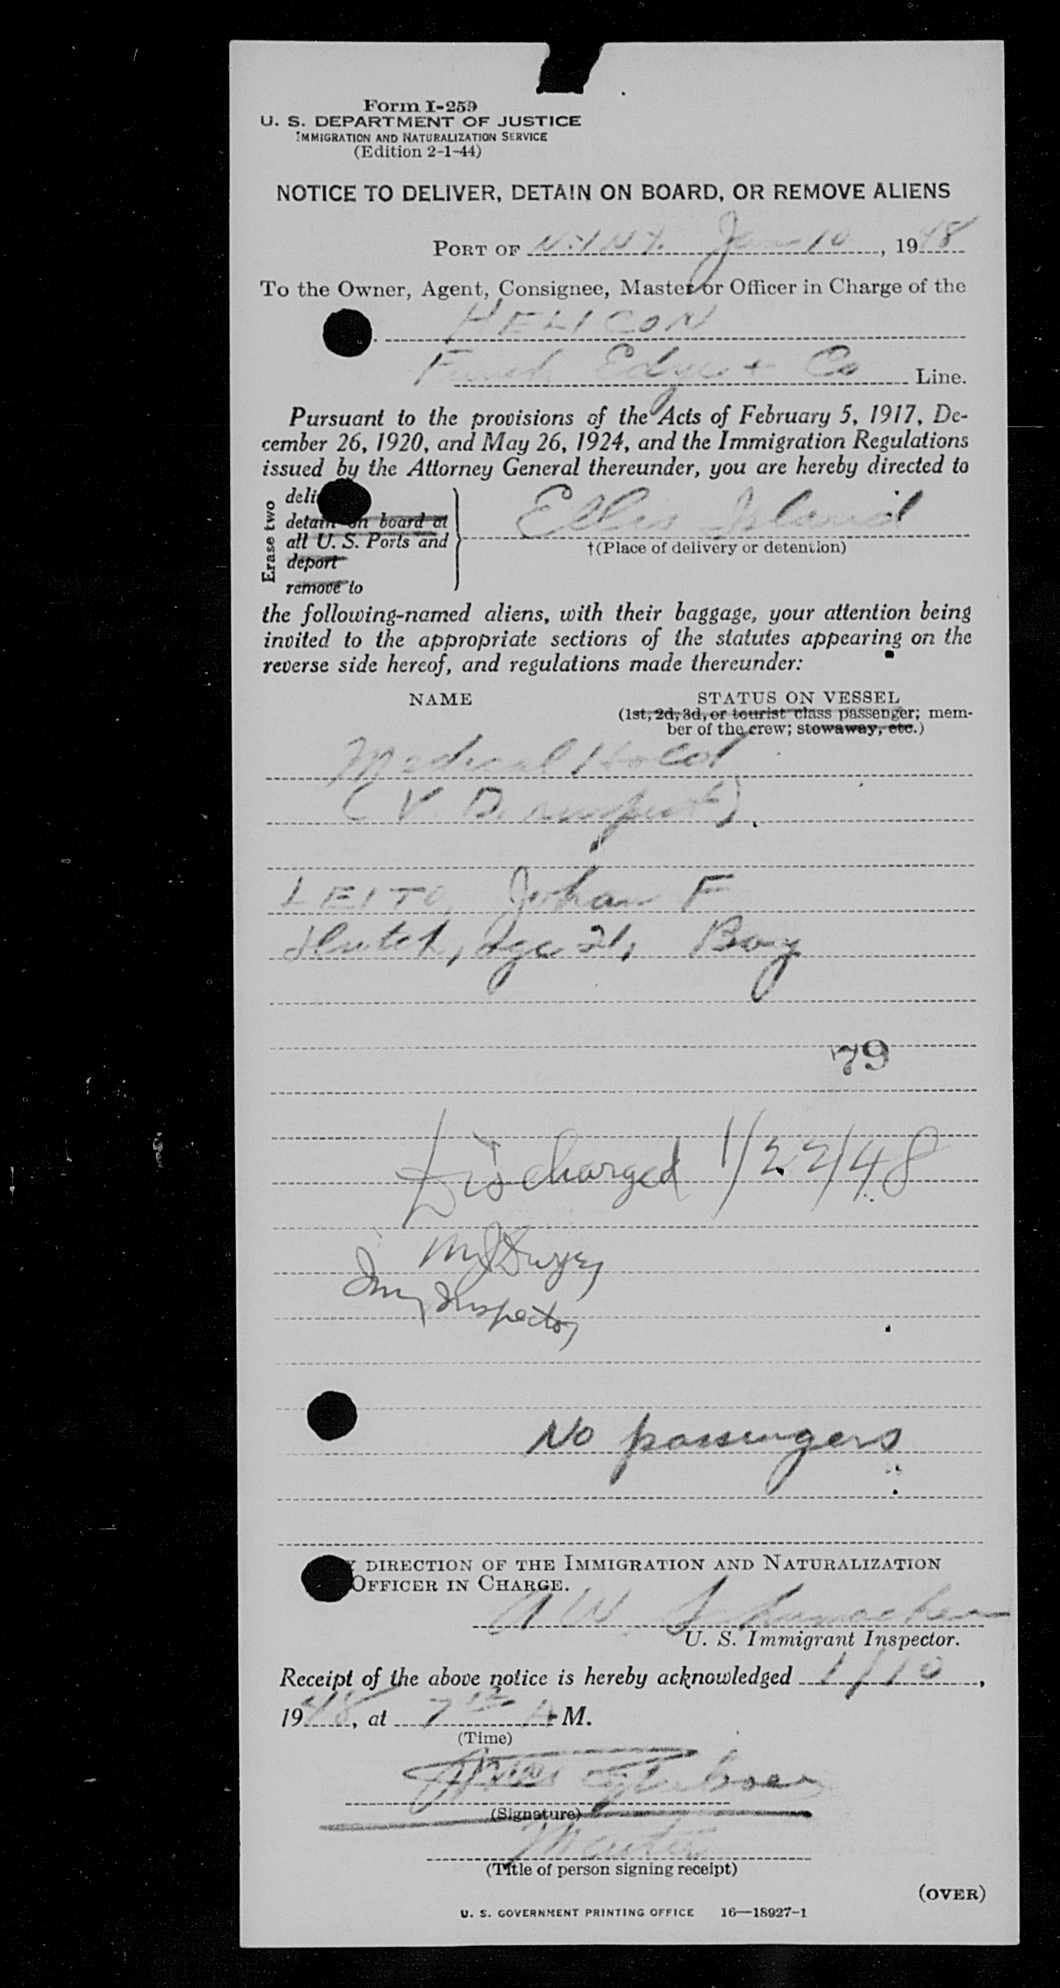 Form I-259
U. S. DEPARTMENT OF JUSTICE
IMMIGRATION AND NATURALIZATION SERVICE
(Edition 2-1-44)
NOTICE TO DELIVER, DETAIN ON BOARD, OR REMOVE ALIENS
PORT OF N.Y. N.Y. Jan 10, 1948
To the Owner, Agent, Consignee, Master or Officer in Charge of the
HELICON
Funch Edye + Co Line.
Pursuant to the provisions of the Acts of February 5, 1917, De-
cember 26, 1920, and May 26, 1924, and the Immigration Regulations
issued by the Attorney General thereunder, you are hereby directed to
Erase two
deli
detain on board at
all U. S. Ports and
deport
remove to
Ellis Island
†(Place of delivery or detention)
the following-named aliens, with their baggage, your attention being
invited to the appropriate sections of the statutes appearing on the
reverse side hereof, and regulations made thereunder:
NAME STATUS ON VESSEL
(1st, 2d, 3d, or tourist class passenger; mem-
ber of the crew; stowaway, etc.)
Medical Hold
(V. D. suspect).
LEITO, Johan F
Dutch, age 21, Boy
79
Discharged 1/22/48
Imm Inspector
No passengers
DIRECTION OF THE IMMIGRATION AND NATURALIZATION
OFFICER IN CHARGE.
A W. Schumacher
U. S. Immigrant Inspector.
Receipt of the above notice is hereby acknowledged 1/10,
1948, at 7 A M.
(Time)
(Signature)
Master
(Title of person signing receipt)
(OVER)
U. S. GOVERNMENT PRINTING OFFICE 16—18927-1